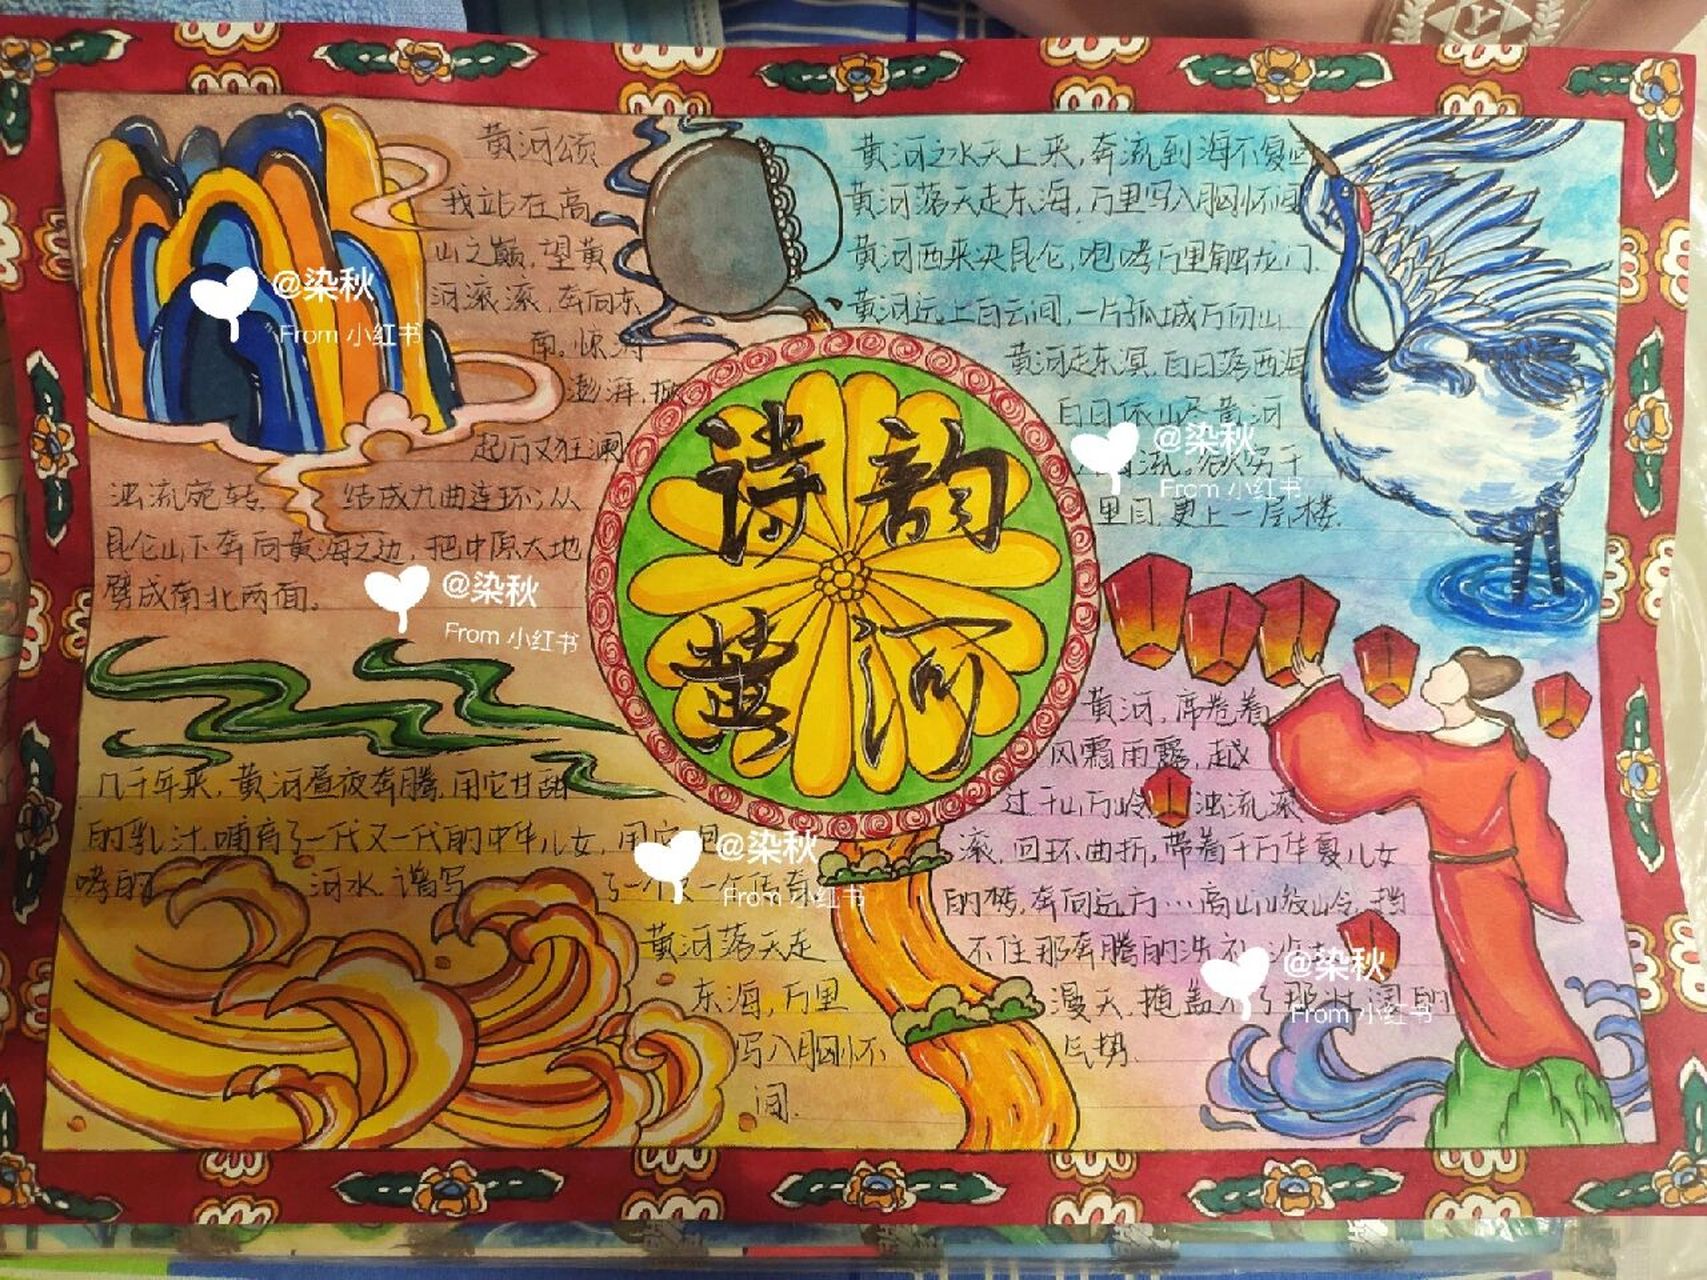 黄河颂
我站在高
山之巅,望黄
河滚滚,奔向东
南。惊涛
澎湃,掀
起万丈狂澜
浊流宛转,结成九曲连环;从
昆仑山下奔向黄海之边,把中原大地
劈成南北两面。
诗韵
黄河
黄河之水天上来,奔流到海不复回
黄河落天走东海,万里写入胸怀间
黄河西来决昆仑,咆哮万里触龙门.
黄河远上白云间,一片孤城万仞山
黄河走东溟,白日落西海
白日依山尽黄河
流。欲穷千
里目,更上一层楼.
几千年来,黄河昼夜奔腾,用它甘甜
的乳汁,哺育了一代又一代的中华儿女,用它
哮的 河水.谱写 了一个又一个传奇
黄河落天走
东海,万里
写入胸怀
间.
黄河,席卷着
风霜雨露,越
过千山万岭,浊流滚
滚,回环曲折,带着千万华夏儿女
的梦,奔向远方…高山峻岭,挡
不住那奔腾的洪
漫天,掩盖不了那 的
气势.
@染秋
From 小红书
@染秋
From 小红书
@染秋
From 小红书
@染秋
From 小红书
@染秋
From 小红书